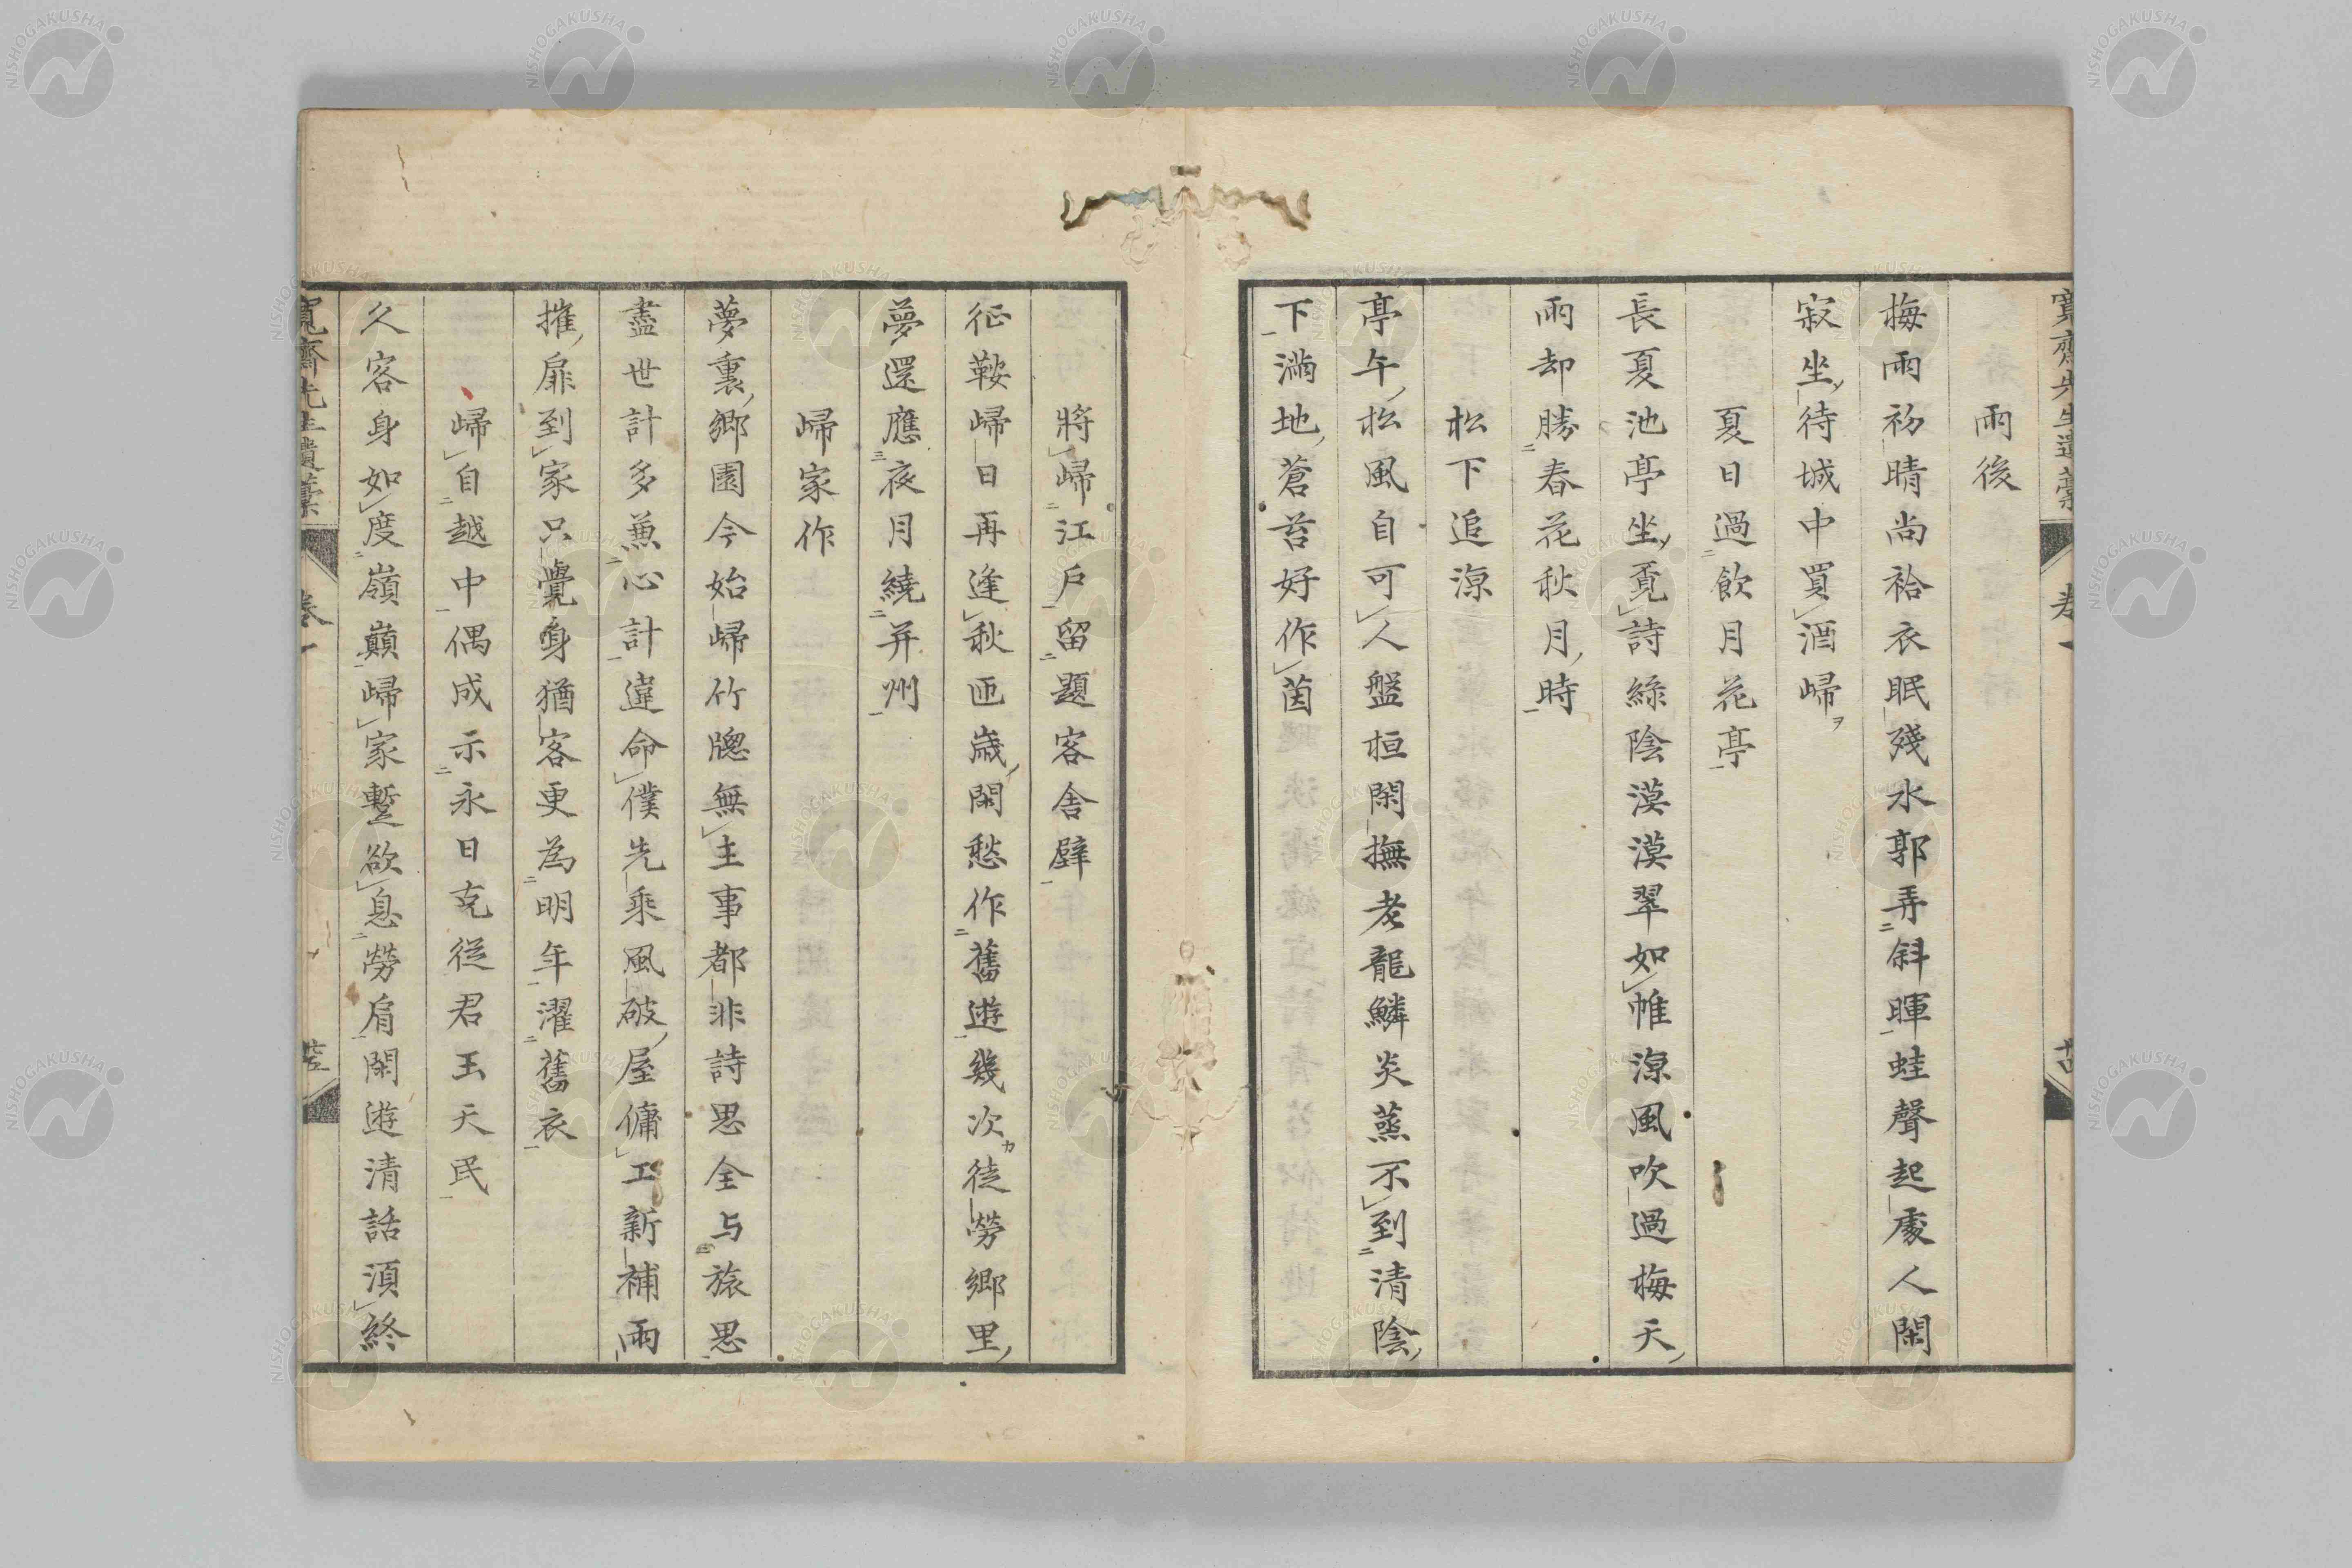 寛齋先生遺藁
卷一
雨後
梅雨初晴尚袷衣眠殘水郭弄斜暉蛙聲起處人閑
寂坐待城中買酒歸
夏日過飲月花亭
長夏池亭坐覔詩綠陰漠漠翠如帷涼風吹過梅天
雨却勝春花秋月時
松下追涼
亭午松風自可人盤桓閑撫老龍鱗炎蒸不到清陰
下滿地蒼苔好作茵
將歸江戶留題客舍壁
征鞍歸日再逢秋匝歲閑愁作舊遊幾次徒勞鄉里
夢還應夜月繞并州
歸家作
夢裏鄉園今始歸竹牕無主事都非詩思全与旅思
盡世計多兼心計違命僕先乘風破屋傭工新補雨
摧扉到家只覺身猶客更為明年濯舊衣
歸自越中偶成示永日克從君玉天民
久客身如度嶺巔歸家暫欲息勞肩閑遊清話須終
寛齋先生遺藁
卷一
NISHOGAKUSHA